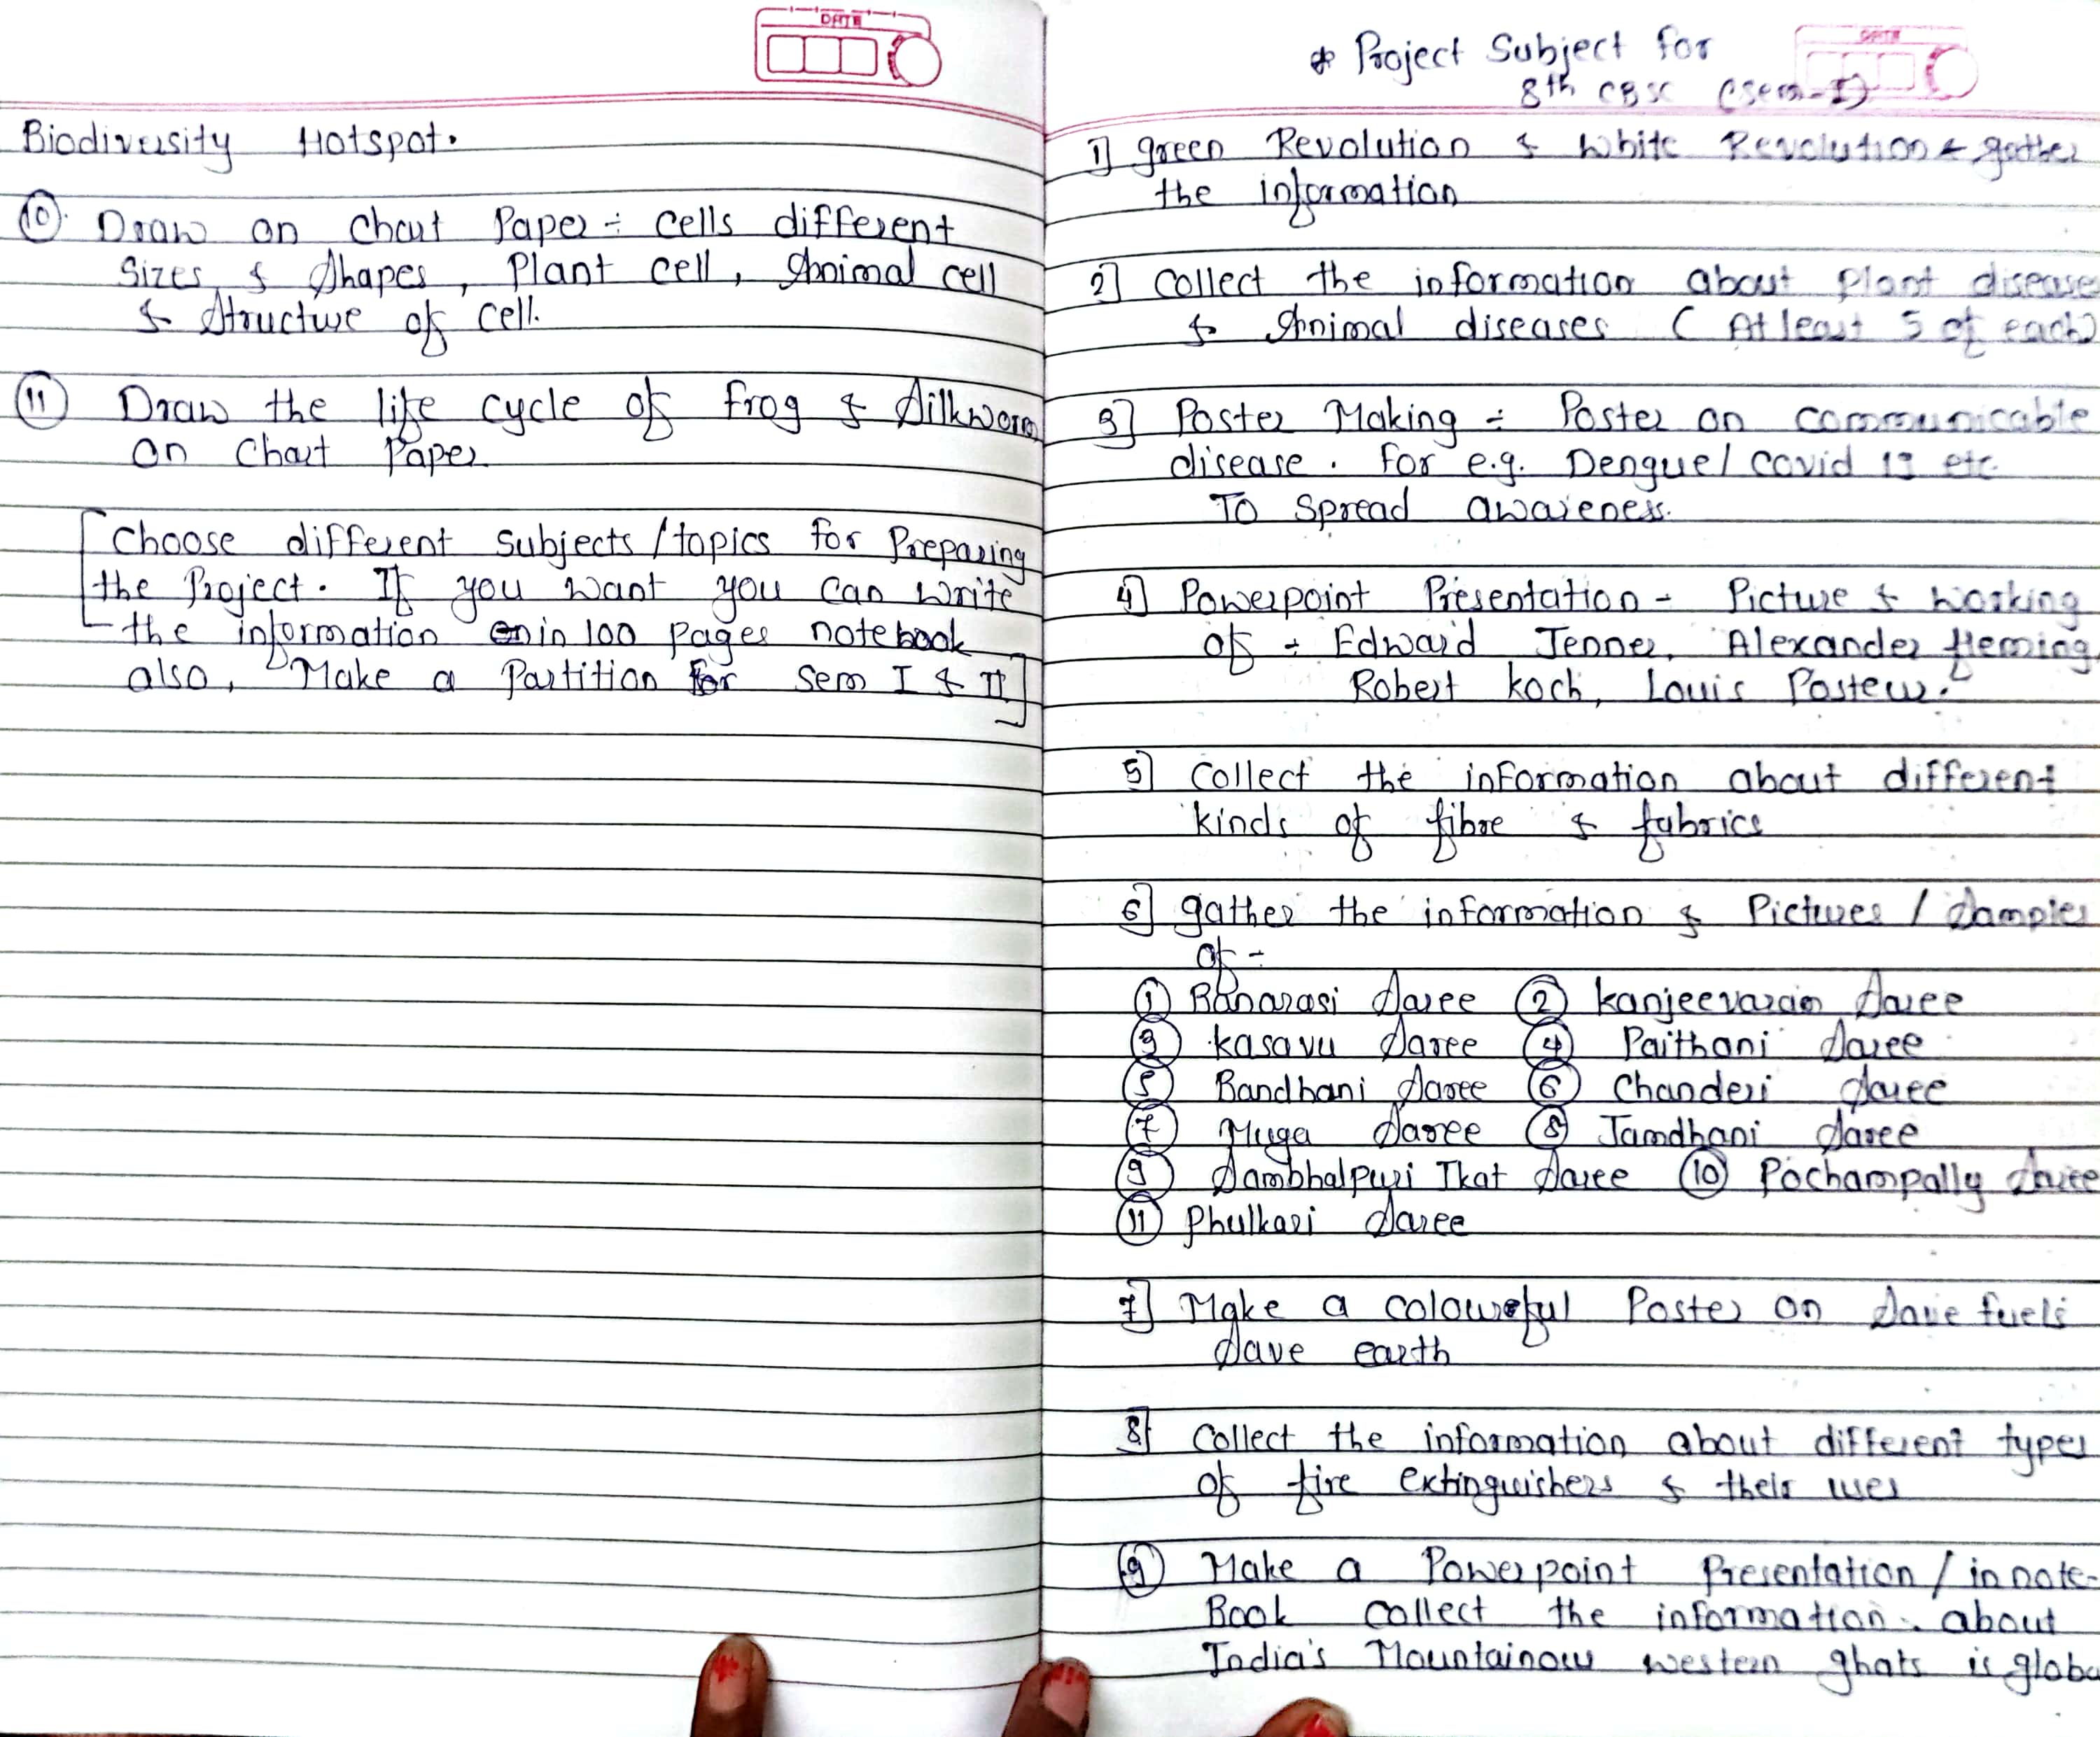 DATE
Biodiversity Hotspot.
⑩ Draw on Chart Paper ÷ cells different
Sizes & Shapes, Plant cell, Animal cell
& Structure of cell.
⑪ Draw the life cycle of frog & Silkworm
on Chart Paper
[Choose different subjects/topics for Preparing
the Project. If you want you can write
the information in 100 pages notebook
also, Make a Partition for sem I & II]
DATE
* Project Subject for
8th CBSC (Sem-I)
1] green Revolution & White Revolution & gather
the information
2] Collect the information about plant disease
& Animal diseases (At least 5 of each)
3] Poster Making ÷ Poster on communicable
disease. for e.g. Dengue/covid 19 etc
To spread awareness.
4] Powerpoint Presentation - Picture & Working
of ÷ Edward Jenner, Alexander fleming,
Robert koch, Louis Pasteur.
5] Collect the information about different
kinds of fibre & fabrics
6] gather the information & Pictures / Samples
of -
① Banarasi Saree ② kanjeevaram Saree
③ kasavu Saree ④ Paithani Saree
⑤ Bandhani Saree ⑥ Chanderi Saree
⑦ Muga Saree ⑧ Jamdhani Saree
⑨ Sambhalpuri Ikat Saree ⑩ Pochampally Saree
⑪ Phulkari Saree
7] Make a colourful Poster on Save fuels
Save earth
8] Collect the information about different types
of fire extinguishers & their uses
⑨ Make a Powerpoint Presentation / in note-
Book collect the information. about
India's Mountainous western ghats is globa